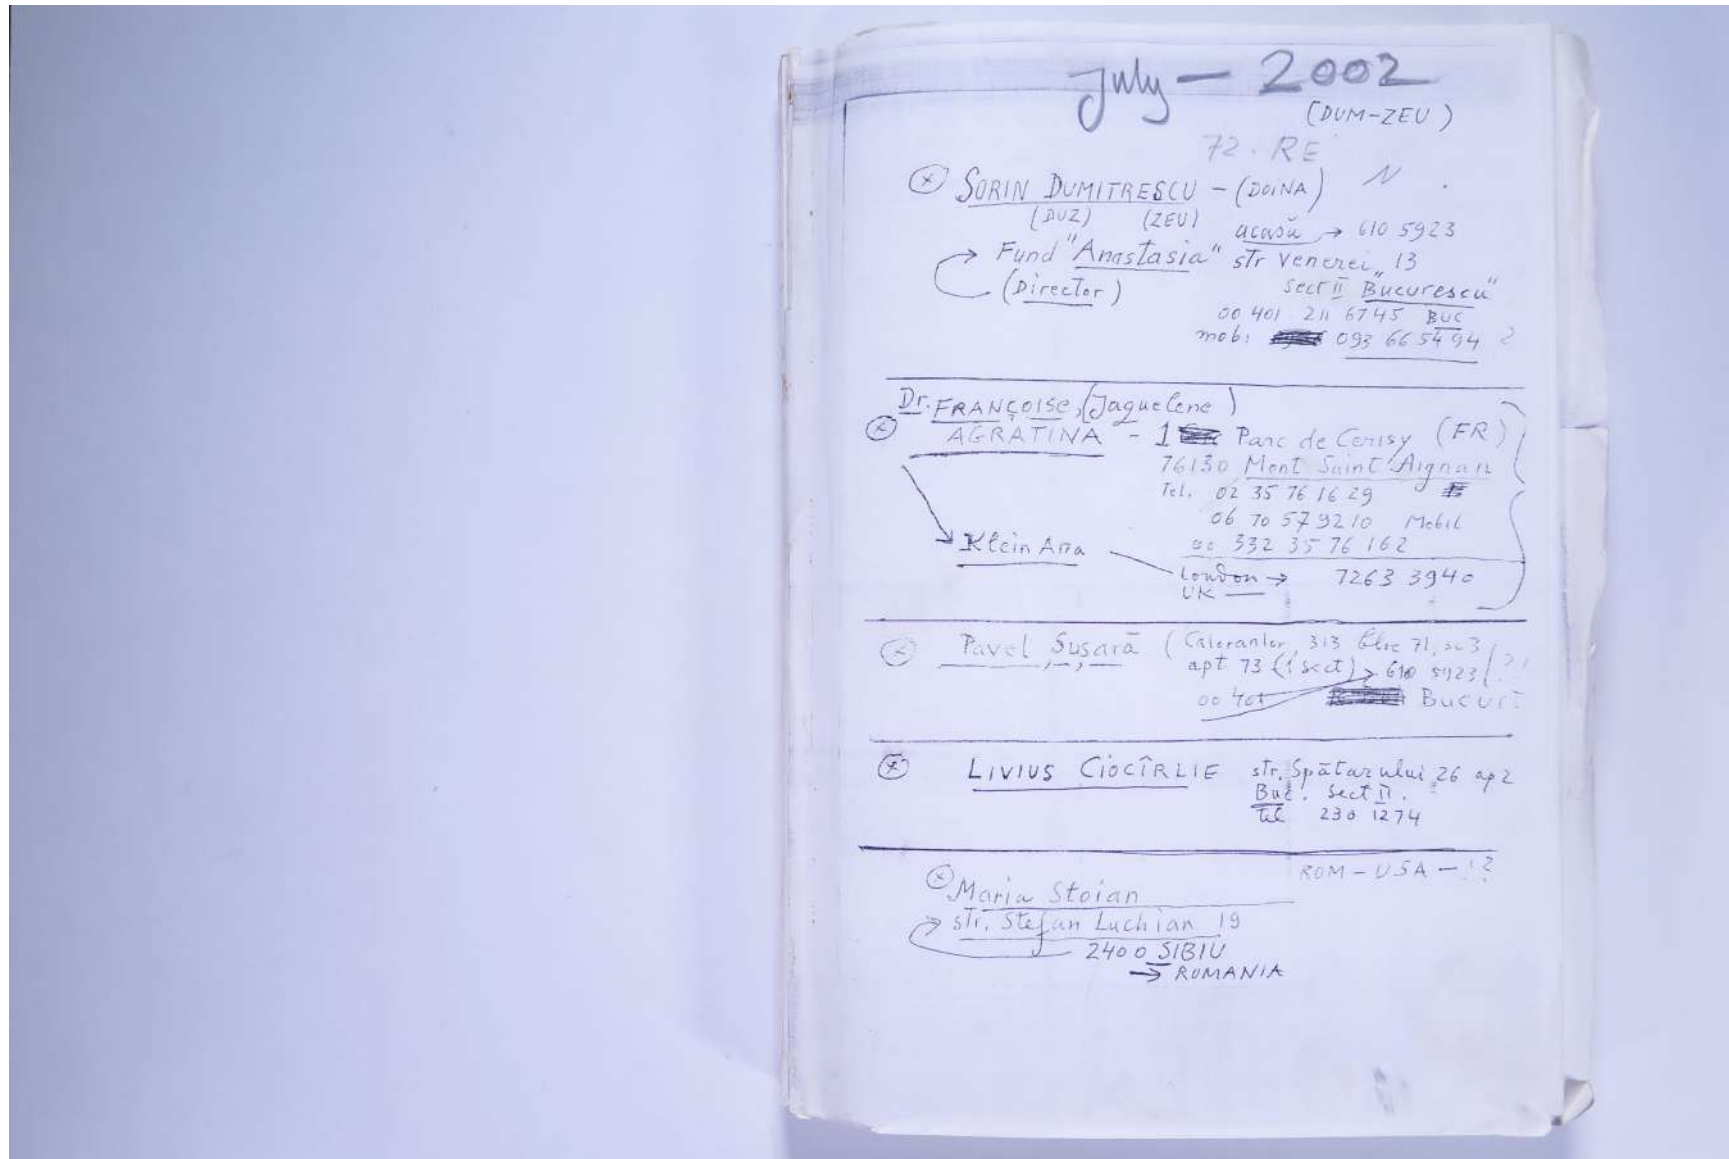 July — 2002
(DUM-ZEU)
72. RE
SORIN DUMITRESCU – (DOINA) N
(DUZ) (ZEU) acasă → 610 5923
→ Fund "Anastasia" str Venerei, 13
(Director) sect II "Bucurescu"
00 401 211 6745 BUC
mob: 093 66 54 94 ?
Dr. FRANÇOISE, (Jaquelene)
AGRATINA – 1 Parc de Cerisy (FR)
76130 Mont Saint Aignan
Tel. 02 35 76 16 29
06 70 57 9210 Mobil
00 332 35 76 162
Klein Ana
London → 7263 3940
UK
Pavel Șușară ( 313 71, sc3
apt 73 (1 sect) 610 5923 (?)
00 401 Bucur
LIVIUS CIOCÎRLIE str. Spătarului 26 ap 2
Buc. Sect II.
tel 230 1274
ROM – USA – !?
Maria Stoian
→ str. Stefan Luchian 19
2400 SIBIU
→ ROMANIA